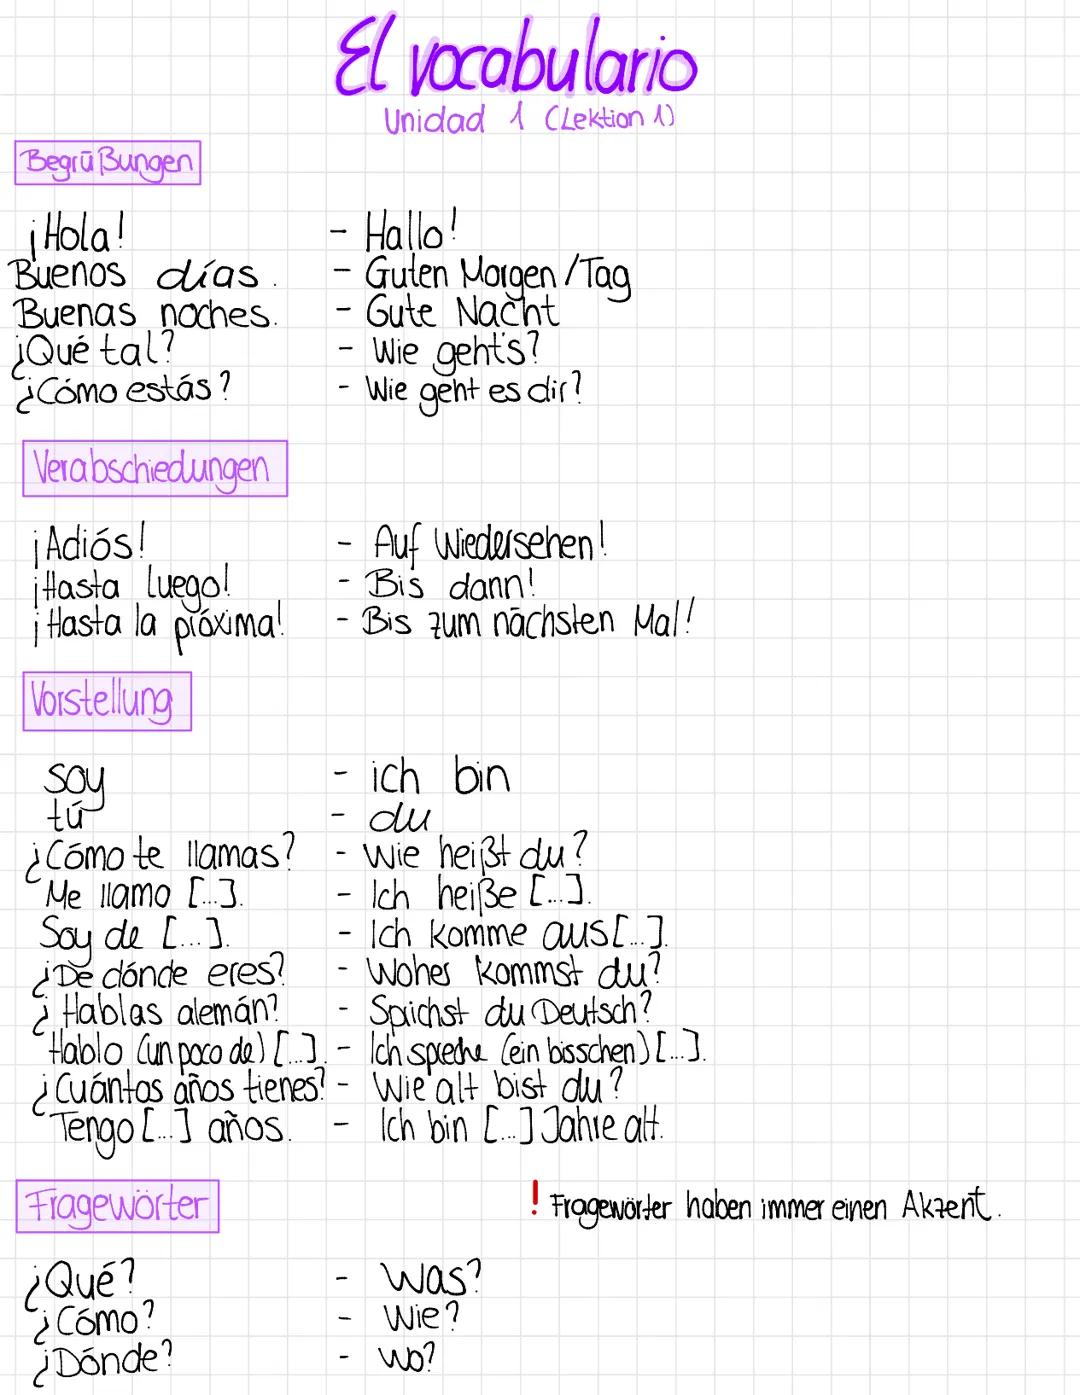 El vocabulario
Unidad 1 (Lektion 1)
Begrüßungen
¡Hola! - Hallo!
Buenos días. - Guten Morgen/Tag
Buenas noches. - Gute Nacht
¿Qué tal? - Wie geht's?
¿Cómo estás? - Wie geht es dir?
Verabschiedungen
¡Adiós! - Auf Wiedersehen!
¡Hasta luego! - Bis dann!
¡Hasta la próxima! - Bis zum nächsten Mal!
Vorstellung
soy - ich bin
tú - du
¿Cómo te llamas? - Wie heißt du?
Me llamo [...]. - Ich heiße [...].
Soy de [...]. - Ich komme aus [...].
¿De dónde eres? - Woher kommst du?
¿Hablas alemán? - Sprichst du Deutsch?
Hablo (un poco de) [...]. - Ich spreche (ein bisschen) [...].
¿Cuántos años tienes? - Wie alt bist du?
Tengo [...] años. - Ich bin [...] Jahre alt.
Fragewörter ! Fragewörter haben immer einen Akzent.
¿Qué? - Was?
¿Cómo? - Wie?
¿Dónde? - Wo?